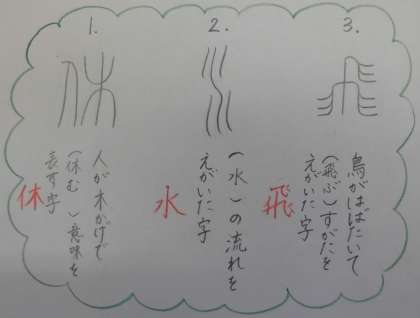 1.
人が木かげで
(休む)意味を
表す字
休
2.
(水)の流れを
えがいた字
水
3.
鳥がはばたいて
(飛ぶ)すがたを
えがいた字
飛